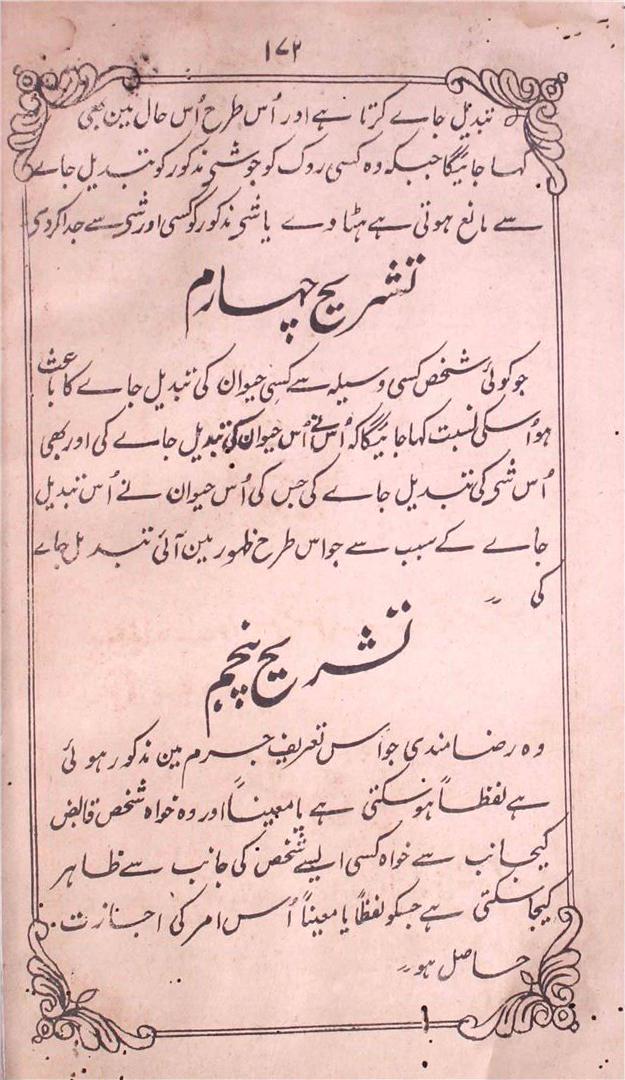 ۱۷۲
تبدیل جاے کرتا ہے اور اُس طرح اُس حال مین بھی
کہا جائیگا جبکہ وہ کسی روک کو جو شی مذکور کو تبدیل جاے
سے مانع ہوتی ہے ہٹا وے یا شی مذکور کو کسی اور شی سے جدا کر دی
تشریح چہارم
جو کوئی شخص کسی وسیلہ سے کسی حیوان کی تبدیل جاے کا باعث
ہو اُسکی نسبت کہا جائیگا کہ اُس نے اُس حیوان کی تبدیل جاے کی اور بھی
اُس شی کی تبدیل جاے کی جس کی اُس حیوان نے اُس تبدیل
جاے کے سبب سے جو اس طرح ظہور مین آئی تبدیل جاے
کی
تشریح پنجم
وہ رضامندی جو اس تعریف جرم مین مذکور ہوئی
ہے لفظاً ہو سکتی ہے یا معیناً اور وہ خواہ شخص قابض
کیجانب سے خواہ کسی ایسے شخص کی جانب سے ظاہر
کیجا سکتی ہے جسکو لفظاً یا معیناً اُس امر کی اجازت
حاصل ہو